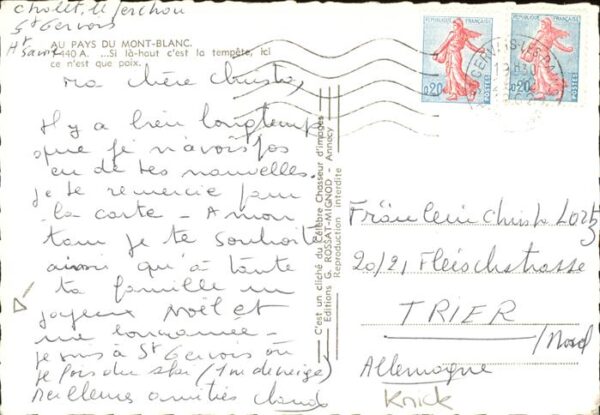 Chalet, le Perchou
St Gervais
Hte Savoie
AU PAYS DU MONT-BLANC.
440 A. ...Si là-haut c'est la tempête, ici
ce n'est que paix.
Ma chère Christa,
Il y a bien longtemps
que je n'avais pas
eu de tes nouvelles.
Je te remercie pour
la carte - A mon
tour je te souhaite
ainsi qu'à toute
ta famille un
joyeux Noël et
une bonne année -
je suis à St Gervais où
je fais du ski (1m de neige)
Meilleures amitiés Claude
C'est un cliché du Célèbre Chasseur d'images
Editions G. ROSSAT-MIGNOD - Annecy
Reproduction interdite
REPUBLIQUE FRANÇAISE
0,20 POSTES
REPUBLIQUE FRANÇAISE
0,20 POSTES
ST GERVAIS-LES-BAINS
Fräulein Christa Lortz
20/21 Fleischstrasse
TRIER
/Mosel
Allemagne
Knick